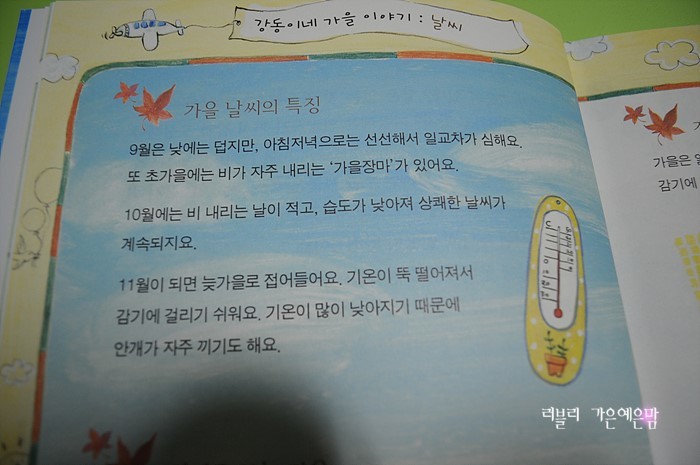 강동이네 가을 이야기 : 날씨
가을 날씨의 특징
9월은 낮에는 덥지만, 아침저녁으로는 선선해서 일교차가 심해요.
또 초가을에는 비가 자주 내리는 '가을장마'가 있어요.
10월에는 비 내리는 날이 적고, 습도가 낮아져 상쾌한 날씨가
계속되지요.
11월이 되면 늦가을로 접어들어요. 기온이 뚝 떨어져서
감기에 걸리기 쉬워요. 기온이 많이 낮아지기 때문에
안개가 자주 끼기도 해요.
가을은
감기에
러블리 가은예은맘